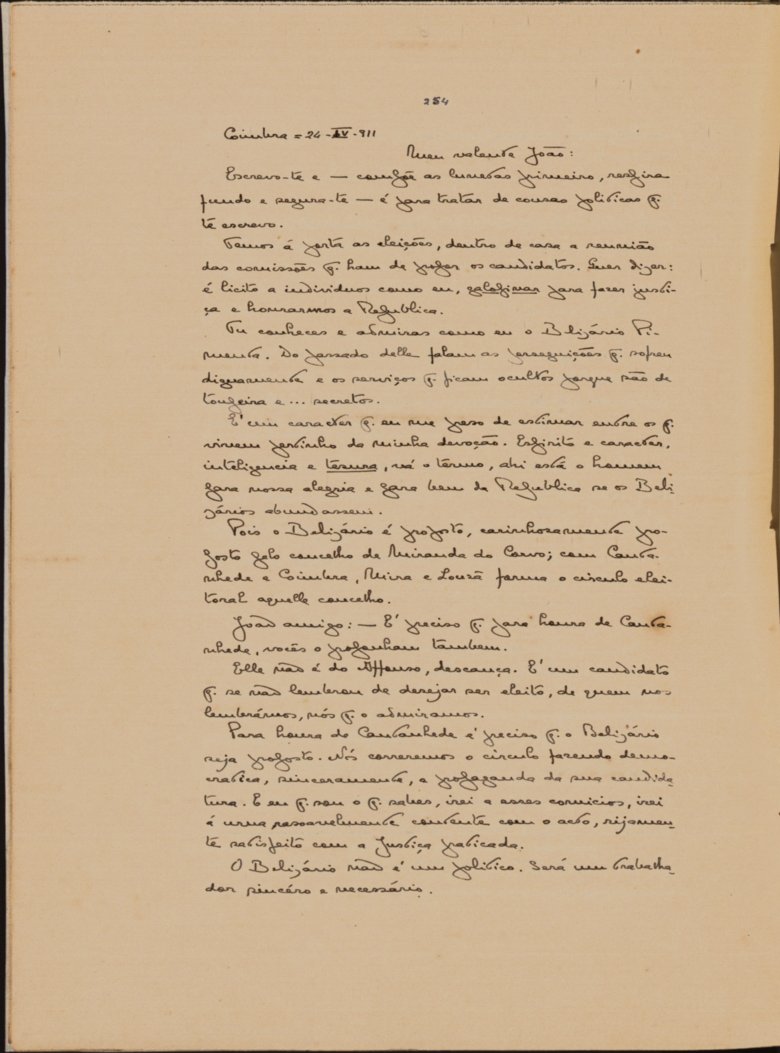 254
Coimbra = 24-IV-911
Meu valente João:
Escrevo-te e — compõe as lunetas primeiro, respira
fundo e segura-te — é para tratar de cousas politicas q.
te escrevo.
Temos á porta as eleições, dentro de casa a reunião
das comissões q. ham de propor os candidatos. Quer dizer:
é licito a individuos como eu, galopinar para fazer justi-
ça e honrarmos a Republica.
Tu conheces e admiras como eu o Belizário Pi-
menta. Do passado delle falam as perseguições q. sofreu
dignamente e os serviços q. ficam ocultos porque são de
toupeira e ... secretos.
E' um caracter q. eu me preso de estimar entre os q.
vivem pertinho da minha devoção. Espirito e caracter,
inteligencia e tesura, vá o têrmo, ahi está o homem
para nossa alegria e para bem da Republica se os Beli-
zários abundassem.
Pois o Belizário é proposto, carinhosamente pro-
posto pelo concelho de Miranda do Corvo; com Canta-
nhede e Coimbra, Mira e Louzã forma o circulo elei-
toral aquelle concelho.
João amigo: — E' preciso q. para honra de Canta-
nhede, vocês o proponham tambem.
Elle não é do Affonso, descança. E' um candidato
q. se não lembrou de desejar ser eleito, de quem nos
lembrámos, nós q. o admiramos.
Para honra de Cantanhede é preciso q. o Belizário
seja proposto. Nós correremos o circulo fazendo demo-
cratica, sinceramente, a propaganda da sua candida-
tura. E eu q. sou o q. sabes, irei a esses comicios, irei
á urna rasoavelmente contente com o acto, rijamen-
te satisfeito com a Justiça praticada.
O Belizário não é um politico. Será um trabalha-
dor sincéro e necessário.